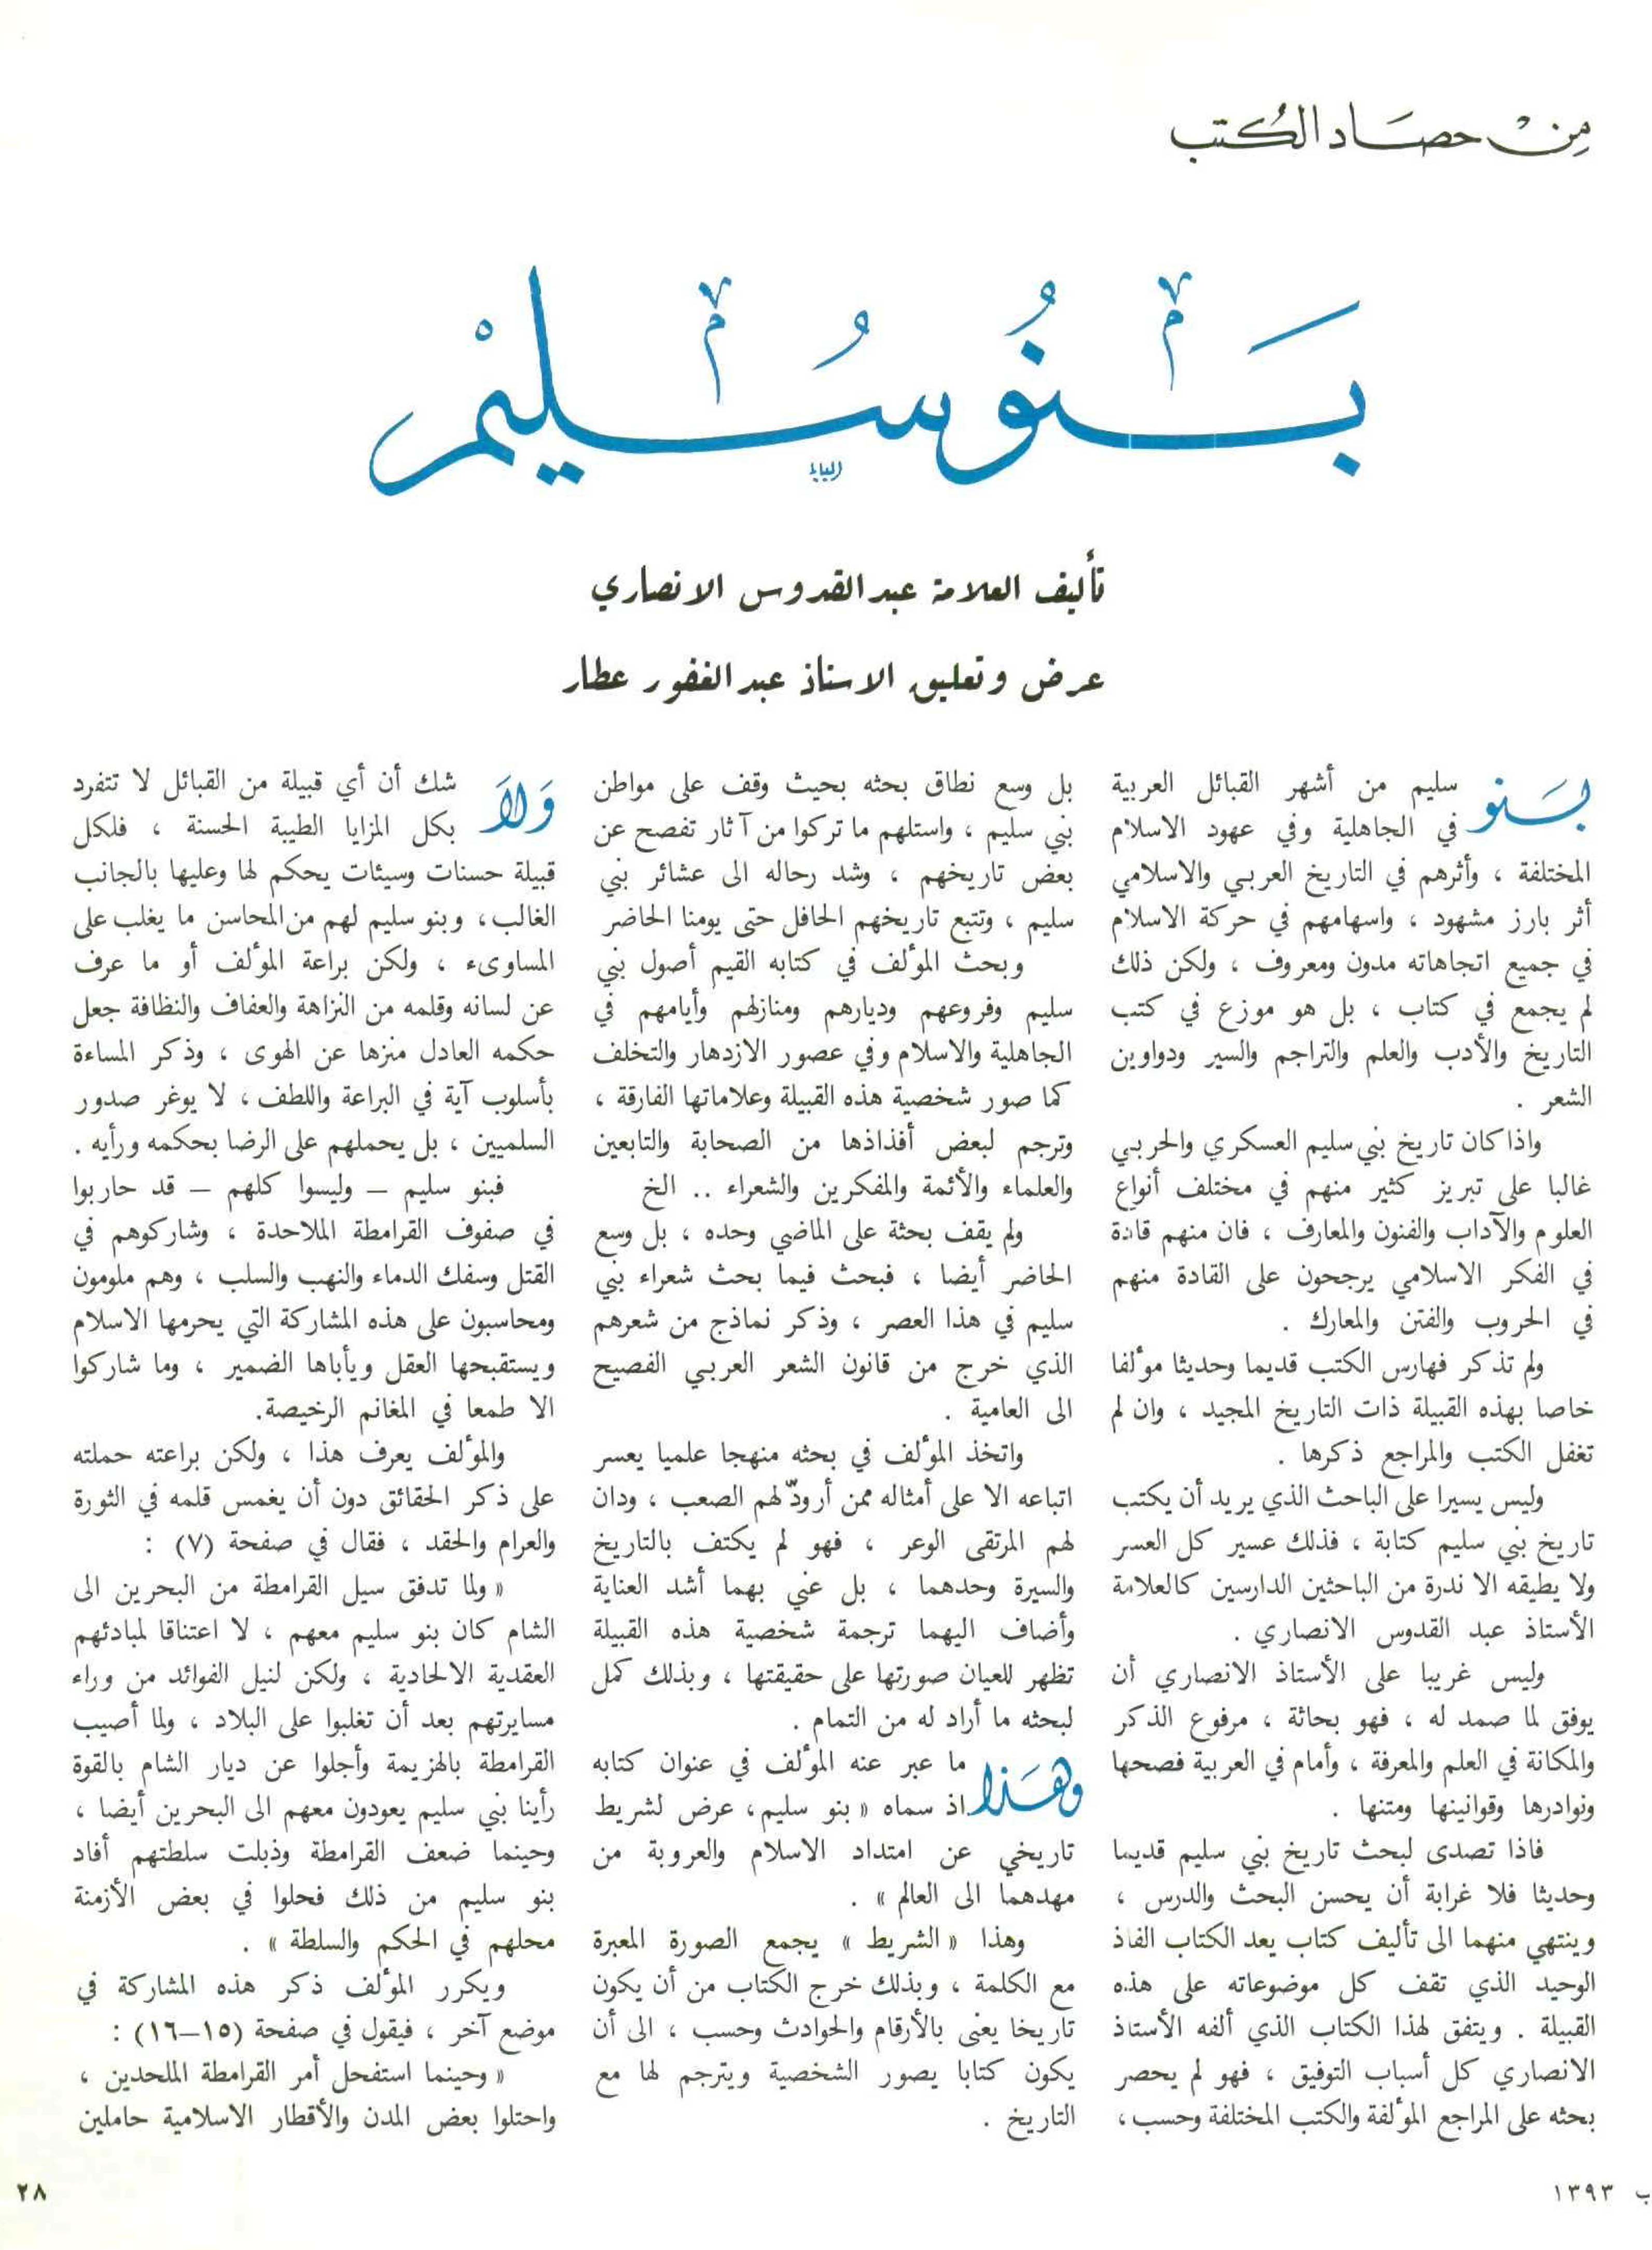 مِنْ حصَاد الكُتب
بَنُو سُليمْ
تأليف العلامة عبد القدوس الانصاري
عرض وتعليق الاستاذ عبد الغفور عطار
بَنو سليم من أشهر القبائل العربية
في الجاهلية وفي عهود الاسلام
المختلفة ، وأثرهم في التاريخ العربي والاسلامي
أثر بارز مشهود ، واسهامهم في حركة الاسلام
في جميع اتجاهاته مدون ومعروف ، ولكن ذلك
لم يجمع في كتاب ، بل هو موزع في كتب
التاريخ والأدب والعلم والتراجم والسير ودواوين
الشعر .
واذا كان تاريخ بني سليم العسكري والحربي
غالبا على تبريز كثير منهم في مختلف أنواع
العلوم والآداب والفنون والمعارف ، فان منهم قادة
في الفكر الاسلامي يرجحون على القادة منهم
في الحروب والفتن والمعارك .
ولم تذكر فهارس الكتب قديما وحديثا مؤلفا
خاصا بهذه القبيلة ذات التاريخ المجيد ، وان لم
تغفل الكتب والمراجع ذكرها .
وليس يسيرا على الباحث الذي يريد أن يكتب
تاريخ بني سليم كتابة ، فذلك عسير كل العسر
ولا يطيقه الا ندرة من الباحثين الدارسين كالعلامة
الأستاذ عبد القدوس الانصاري .
وليس غريبا على الأستاذ الانصاري أن
يوفق لما صمد له ، فهو بحاثة ، مرفوع الذكر
والمكانة في العلم والمعرفة ، وأمام في العربية فصحها
ونوادرها وقوانينها ومتنها .
فاذا تصدى لبحث تاريخ بني سليم قديما
وحديثا فلا غرابة أن يحسن البحث والدرس ،
وينتهي منهما الى تأليف كتاب يعد الكتاب الفاذ
الوحيد الذي تقف كل موضوعاته على هذه
القبيلة . ويتفق لهذا الكتاب الذي ألفه الأستاذ
الانصاري كل أسباب التوفيق ، فهو لم يحصر
بحثه على المراجع المؤلفة والكتب المختلفة وحسب ،
بل وسع نطاق بحثه بحيث وقف على مواطن
بني سليم ، واستلهم ما تركوا من آثار تفصح عن
بعض تاريخهم ، وشد رحاله الى عشائر بني
سليم ، وتتبع تاريخهم الحافل حتى يومنا الحاضر
وبحث المؤلف في كتابه القيم أصول بني
سليم وفروعهم وديارهم ومنازلهم وأيامهم في
الجاهلية والاسلام وفي عصور الازدهار والتخلف
كما صور شخصية هذه القبيلة وعلاماتها الفارقة ،
وترجم لبعض أفذاذها من الصحابة والتابعين
والعلماء والأئمة والمفكرين والشعراء .. الخ
ولم يقف بحثة على الماضي وحده ، بل وسع
الحاضر أيضا ، فبحث فيما بحث شعراء بني
سليم في هذا العصر ، وذكر نماذج من شعرهم
الذي خرج من قانون الشعر العربي الفصيح
الى العامية .
واتخذ المؤلف في بحثه منهجا علميا يعسر
اتباعه الا على أمثاله ممن أرودّ لهم الصعب ، ودان
لهم المرتقى الوعر ، فهو لم يكتف بالتاريخ
والسيرة وحدهما ، بل عني بهما أشد العناية
وأضاف اليهما ترجمة شخصية هذه القبيلة
تظهر للعيان صورتها على حقيقتها ، وبذلك كمل
لبحثه ما أراد له من التمام .
وهَذا ما عبر عنه المؤلف في عنوان كتابه
اذ سماه « بنو سليم ، عرض لشريط
تاريخي عن امتداد الاسلام والعروبة من
مهدهما الى العالم » .
وهذا « الشريط » يجمع الصورة المعبرة
مع الكلمة ، وبذلك خرج الكتاب من أن يكون
تاريخا يعنى بالأرقام والحوادث وحسب ، الى أن
يكون كتابا يصور الشخصية ويترجم لها مع
التاريخ .
وَلاَ شك أن أي قبيلة من القبائل لا تتفرد
بكل المزايا الطيبة الحسنة ، فلكل
قبيلة حسنات وسيئات يحكم لها وعليها بالجانب
الغالب ، وبنو سليم لهم من المحاسن ما يغلب على
المساوىء ، ولكن براعة المؤلف أو ما عرف
عن لسانه وقلمه من النزاهة والعفاف والنظافة جعل
حكمه العادل منزها عن الهوى ، وذكر المساءة
بأسلوب آية في البراعة واللطف ، لا يوغر صدور
السلميين ، بل يحملهم على الرضا بحكمه ورأيه .
فبنو سليم – وليسوا كلهم – قد حاربوا
في صفوف القرامطة الملاحدة ، وشاركوهم في
القتل وسفك الدماء والنهب والسلب ، وهم ملومون
ومحاسبون على هذه المشاركة التي يحرمها الاسلام
ويستقبحها العقل ويأباها الضمير ، وما شاركوا
الا طمعا في المغانم الرخيصة.
والمؤلف يعرف هذا ، ولكن براعته حملته
على ذكر الحقائق دون أن يغمس قلمه في الثورة
والعرام والحقد ، فقال في صفحة (٧) :
« ولما تدفق سيل القرامطة من البحرين الى
الشام كان بنو سليم معهم ، لا اعتناقا لمبادئهم
العقدية الالحادية ، ولكن لنيل الفوائد من وراء
مسايرتهم بعد أن تغلبوا على البلاد ، ولما أصيب
القرامطة بالهزيمة وأجلوا عن ديار الشام بالقوة
رأينا بني سليم يعودون معهم الى البحرين أيضا ،
وحينما ضعف القرامطة وذبلت سلطتهم أفاد
بنو سليم من ذلك فحلوا في بعض الأزمنة
محلهم في الحكم والسلطة » .
ويكرر المؤلف ذكر هذه المشاركة في
موضع آخر ، فيقول في صفحة (١٥–١٦) :
« وحينما استفحل أمر القرامطة الملحدين ،
واحتلوا بعض المدن والأقطار الاسلامية حاملين
ب ١٣٩٣
٢٨